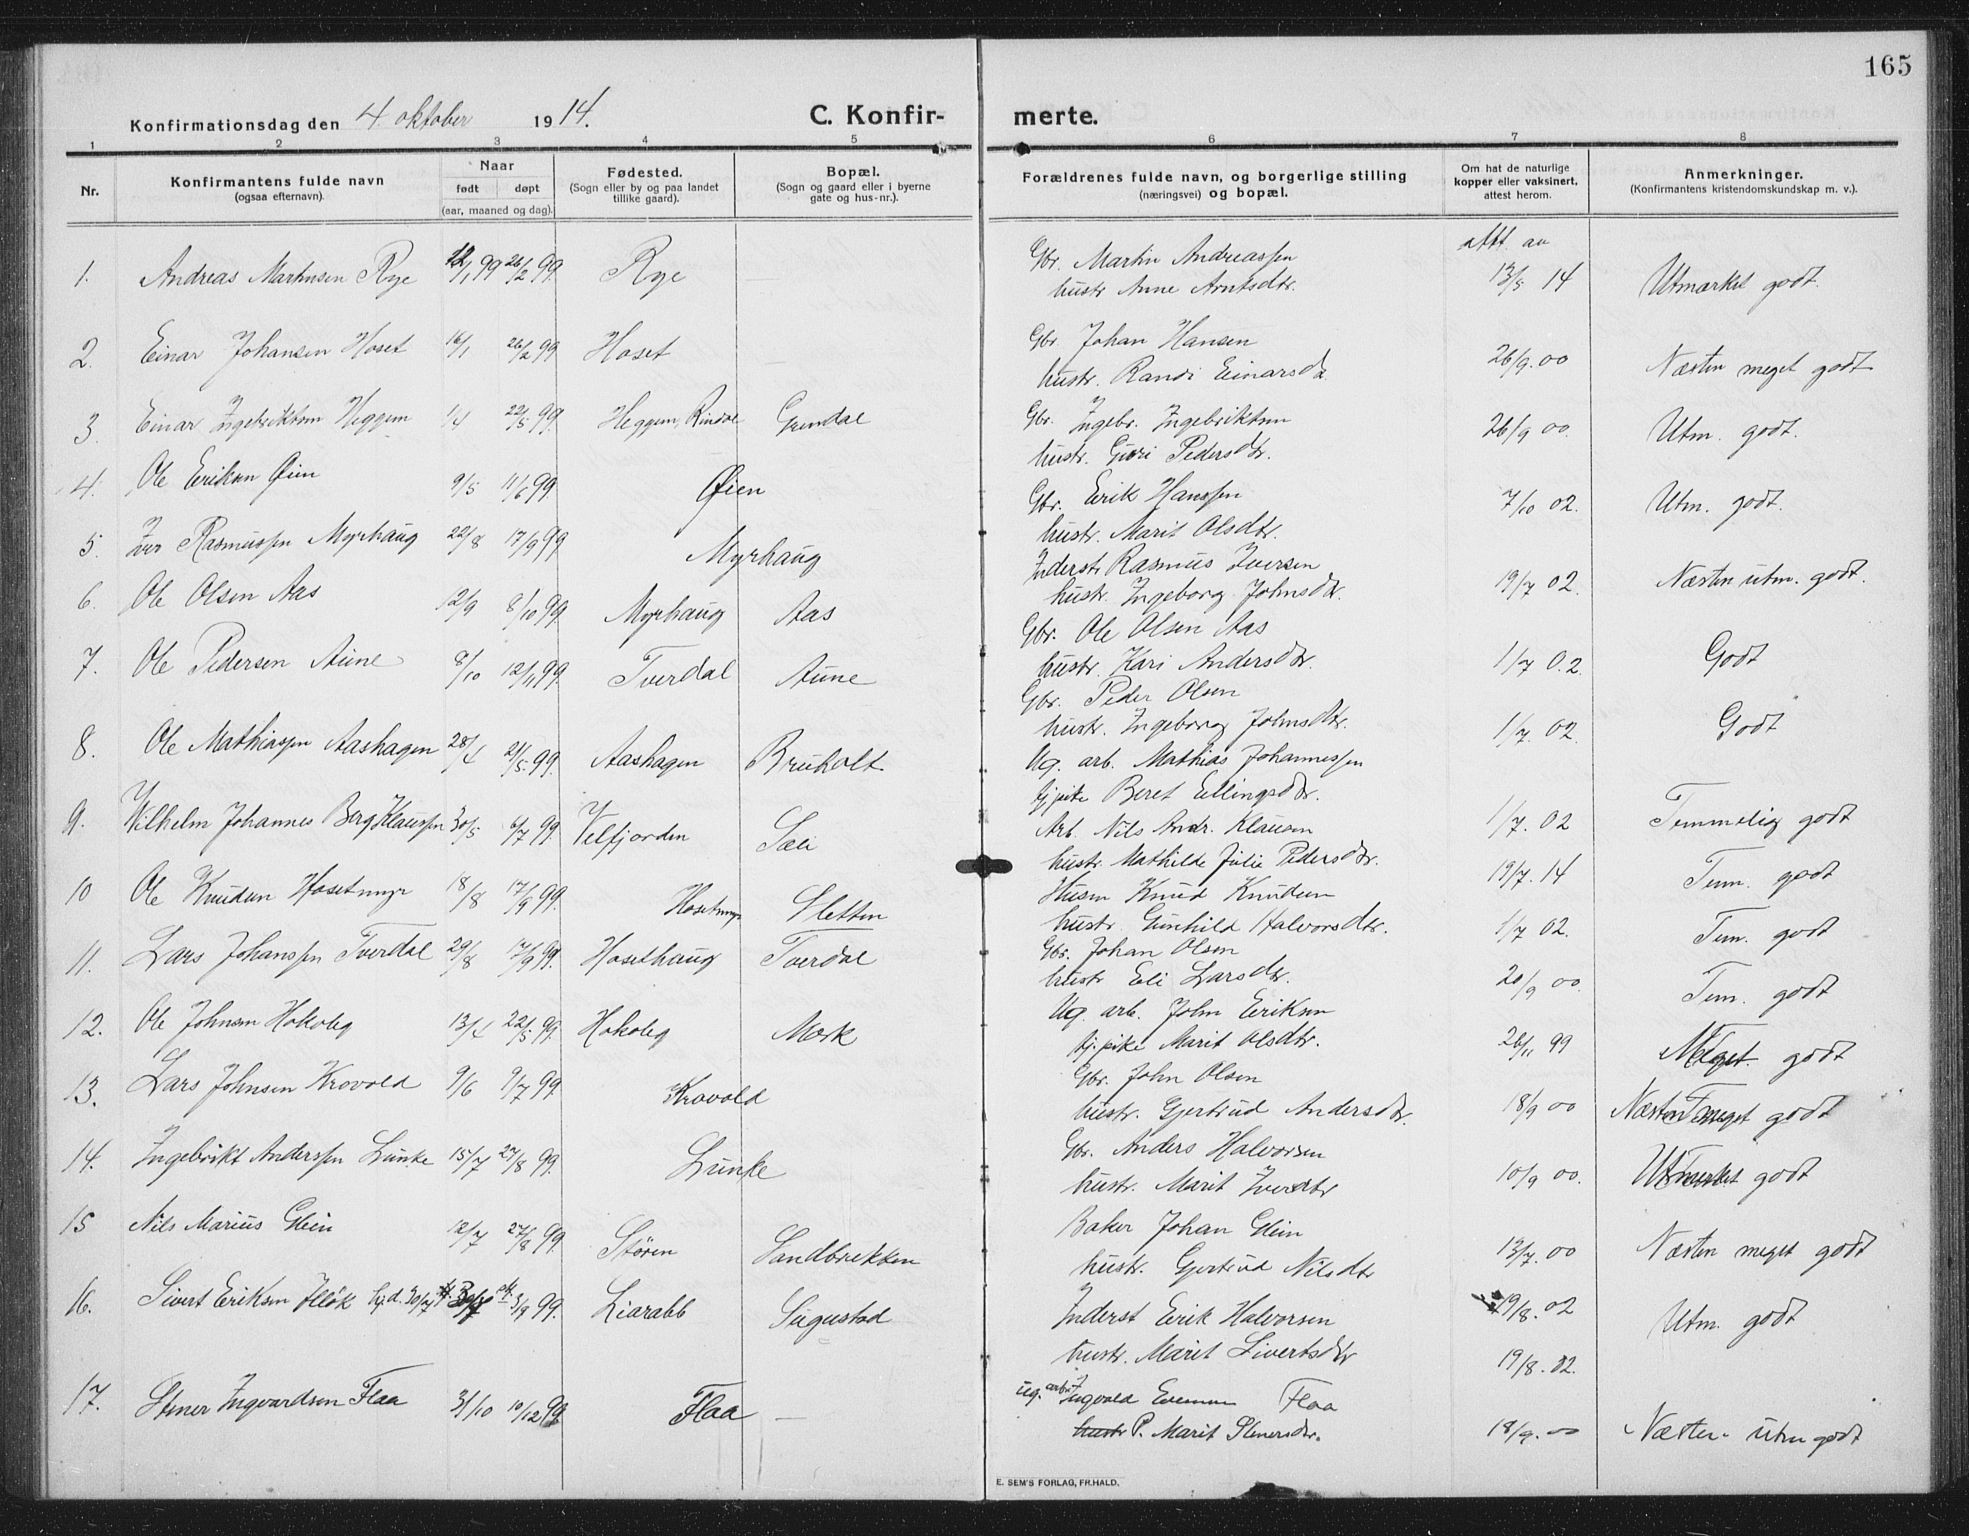 165
Konfirmationsdag den 4. oktober 1914. C. Konfirmerte.
1 2 3 4 5 6 7 8
Nr. Konfirmantens fulde navn (ogsaa efternavn). Naar født døpt (aar, maaned og dag). Fødested. (Sogn eller by og paa landet tillike gaard). Bopæl. (Sogn og gaard eller i byerne gate og hus-nr.). Forældrenes fulde navn, og borgerlige stilling (næringsvei) og bopæl. Om hat de naturlige kopper eller vaksinert, attest herom. Anmerkninger. (Konfirmantens kristendomskundskap m. v.).
1. Andreas Martinsen Rye 12/1 99 26/2 99. Rye — Gbr. Martin Andreassen
hustr Anne Arntsdtr. attt av 13/5 14 Utmærket godt.
2. Einar Johansen Hoset 16/1 26/2 99 Hoset — Gbr. Johan Hansen
hustr. Randi Einarsdtr 26/9.00 Næsten meget godt
3. Einar Ingebriktsen Heggem 1/4 22/5 99. Heggem, Rindal Grendal Gbr. Ingebr. Ingebriktsen
hustr. Guri Pedersdtr. 26/9 00. Utm. godt.
4. Ole Eriksen Øien 9/5 11/6 99 Øien Gbr. Erik Hanssen
hustr. Marit Olsdtr. 7/10 02. Utm. godt.
5. Iver Rasmussen Myrhaug 22/8 17/9 99 Myrhaug Inderst Rasmus Iversen
hustr. Ingeborg Johnsdtr. 19/7 02. Næsten utm. godt.
6. Ole Olsen Aas 12/9 8/10 99. Myrhaug Aas Gbr. Ole Olsen Aas
hustr. Kari Andersdtr. 1/7 0.2. Godt
7. Ole Pedersen Aune 8/10 12/11 99. Tverdal Aune Gbr. Peder Olsen
hustr. Ingeborg Johnsdtr. 1/7. 02. Godt
8. Ole Mathiassen Aashagen 28/4 21/5. 99. Aashagen Bruholt Ug. arb. Mathias Johannessen
tj pike Beret Ellingsdtr. 1/7. 02 Temmelig godt
9. Vilhelm Johannes Berg Klaussen 30/5 6/7 99. Velfjorden Sæli Arb. Nils Andr. Klausen
hustr. Mathilde Julie Pedersdtr. 19/7. 14 Tem. godt
10 Ole Knudsen Hosetmyr 18/8 17/9 99. Hosetmyr Sletten Husm Knud Knudsen
hustr. Gunhild Halvorsdtr. 1/7 02. Tem. godt
11. Lars Johanssen Tverdal 29/8 17/9 99. Hosethaug Tverdal Gbr. Johan Olsen
hustr Eli Larsdtr. 20/9 00. Tem. godt
12. Ole Johnsen Hokoleg 13/4 22/5 99. Hokoleg Mork Ug. arb. John Eriksen
tj. pike Marit Olsdtr. 26/11 99 Meget godt
13. Lars Johnsen Krovold 9/6 9/7 99. Krovold Gbr. John Olsen
hustr. Gjertrud Andersdtr. 18/9 00 Næsten meget godt
14. Ingebrikt Anderssen Lunke 15/7 27/8 99. Lunke Gbr. Anders Halvorsen
hustr. Marit Iversdtr 10/9 00. Utmerket godt
15 Nils Marius Glein 12/7 27/8 99. Støren Sandbrekken Baker Johan Glein
hustr. Gjertrud Nilsdtr 13/7. 00 Næsten meget godt
16. Sivert Eriksen 30/7 3/9 99. Liarabb Sugustad Inderst Erik Halvorsen
hustr. Marit Sivertsdtr 19/8. 02 19/8. 02. Utm. godt
17. Stener Ingvardsen Flaa 31/10 10/12 99 Flaa — ug. arb. Ingvald Evensen Flaa
hustr P. Marit Stenersdtr. 18/9. 00 Næsten utm godt
E. SEM'S FORLAG, FR.HALD.